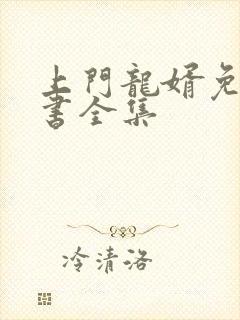 上門龍婿免
書全集
冷清洛